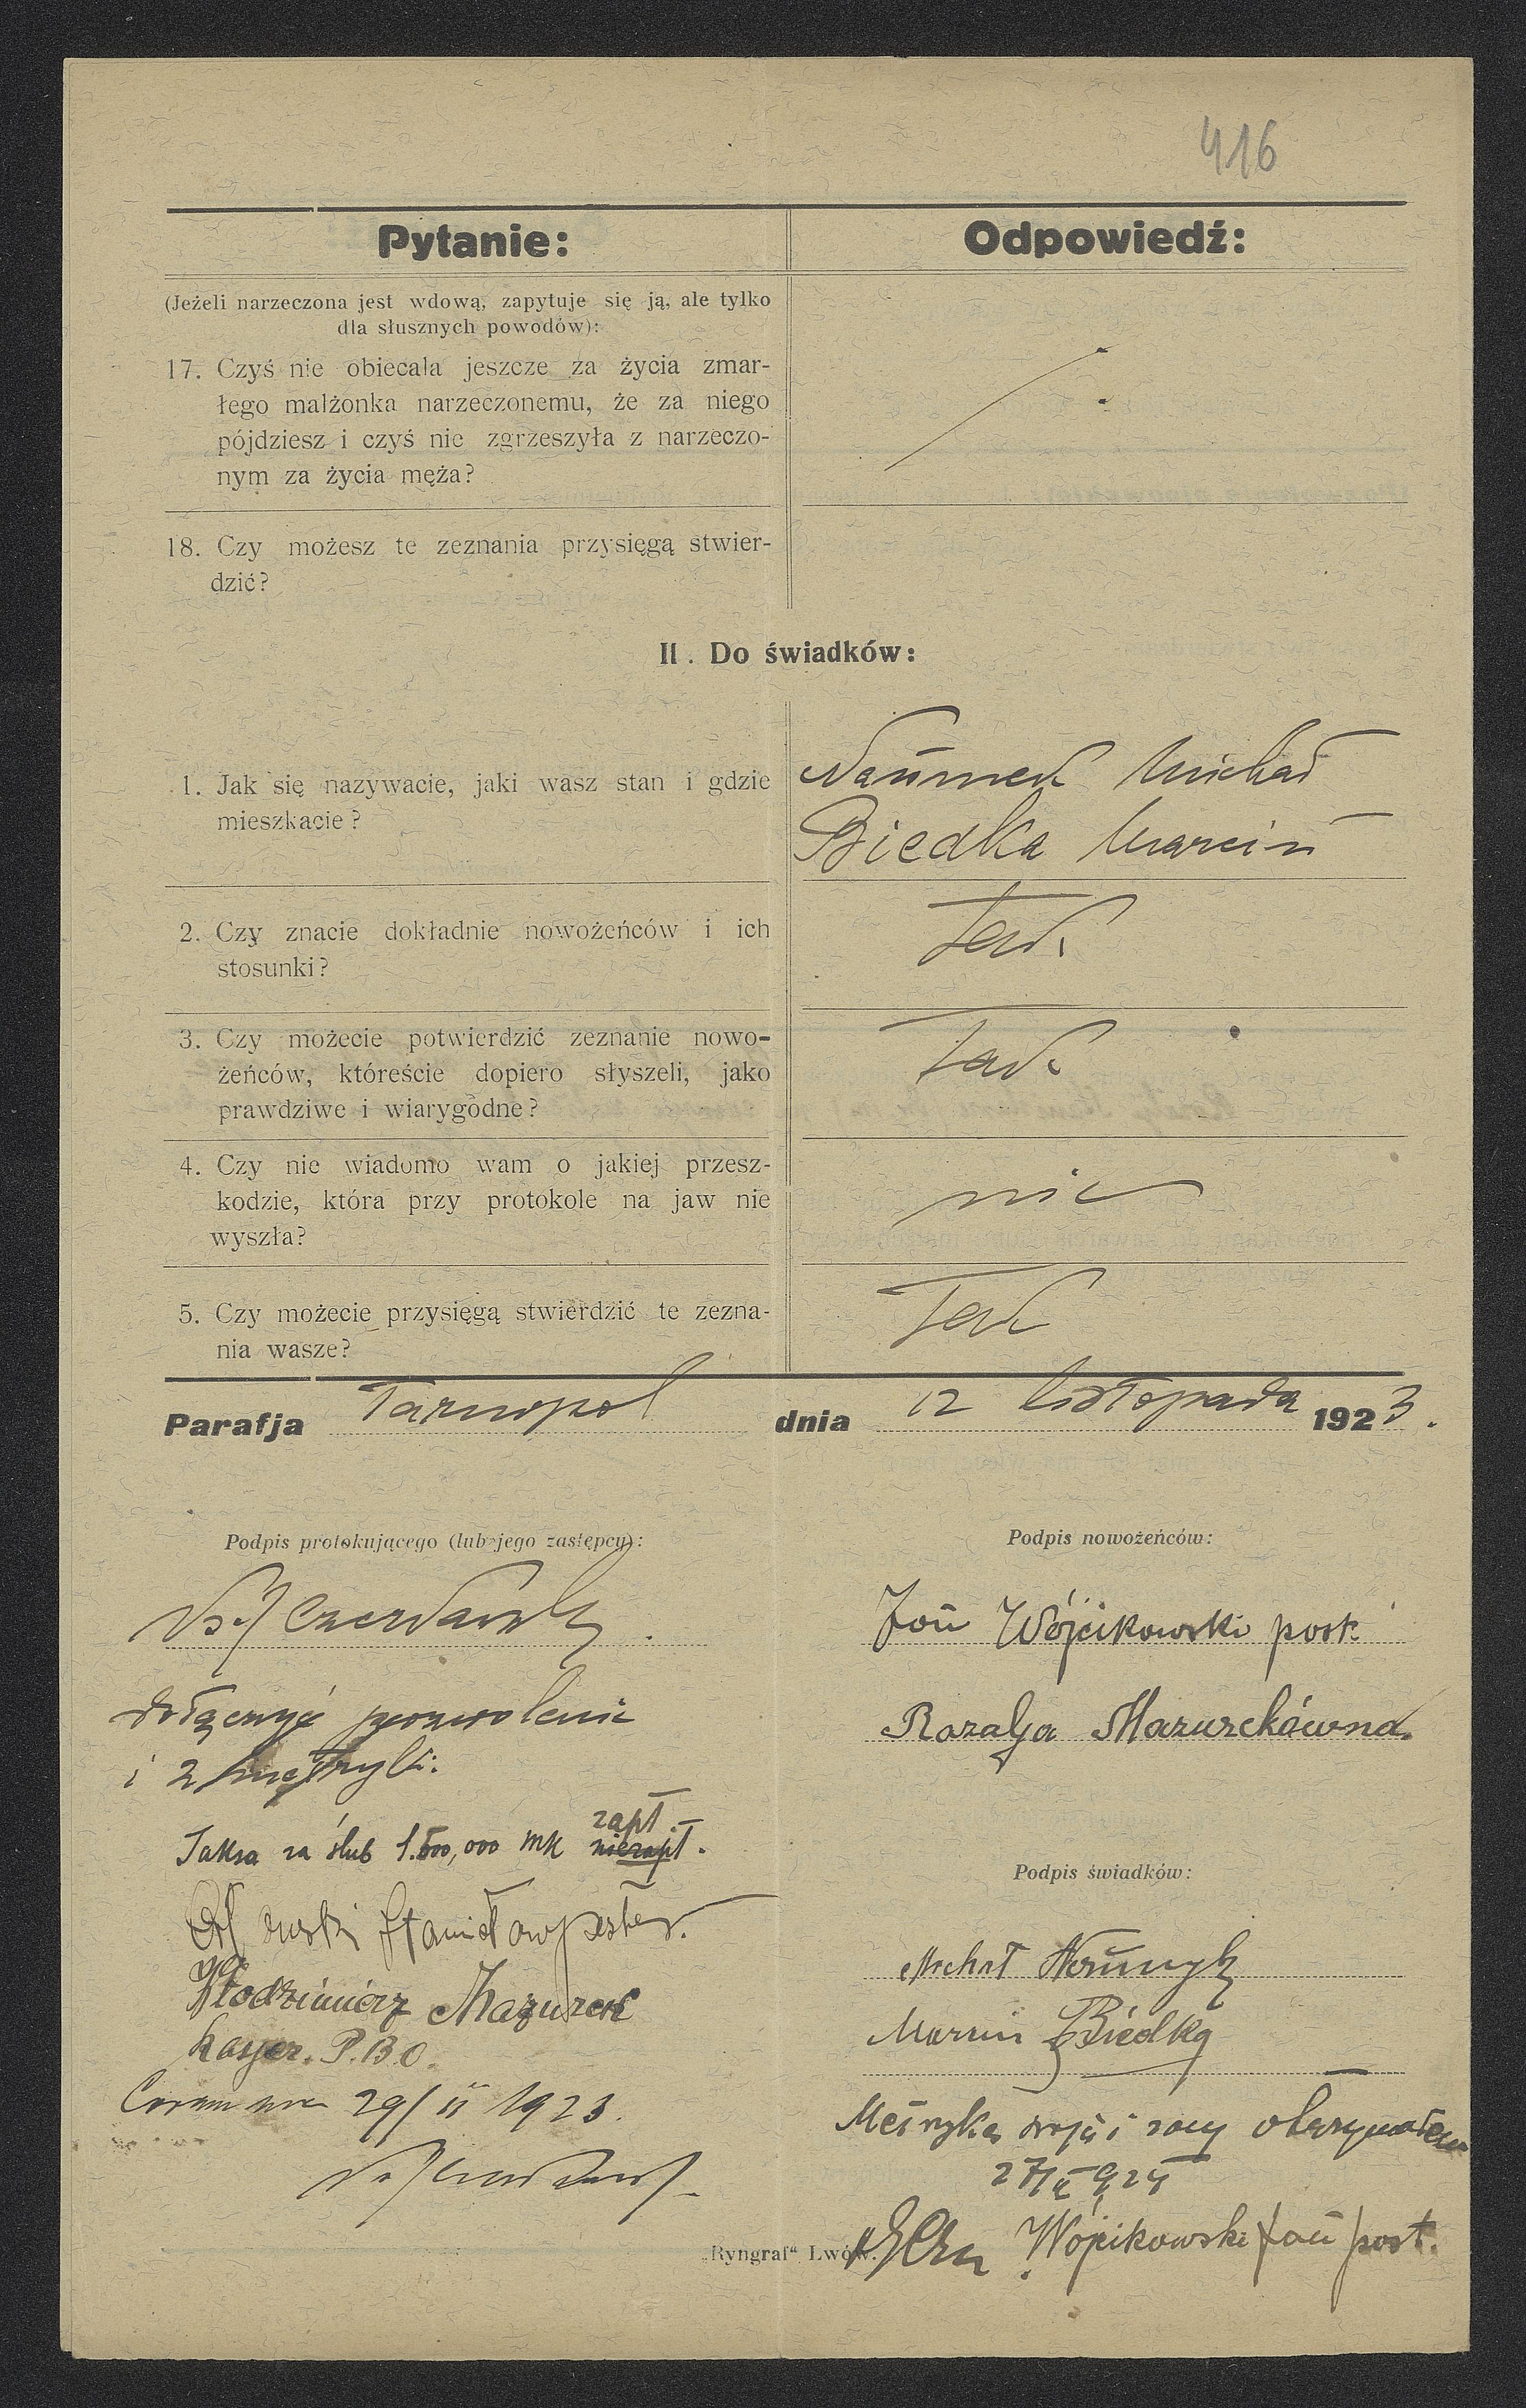 416
Pytanie:
Odpowiedź:
(Jeżeli narzeczona jest wdową, zapytuje się ją, ale tylko
dla słusznych powodów):
17. Czyś nie obiecała jeszcze za życia zmar-
łego małżonka narzeczonemu, że za niego
pójdziesz i czyś nie zgrzeszyła z narzeczo-
nym za życia męża?
18. Czy możesz te zeznania przysięgą stwier-
dzić?
II. Do świadków:
1. Jak się nazywacie, jaki wasz stan i gdzie
mieszkacie?
Michał
Biedka Marcin
2. Czy znacie dokładnie nowożeńców i ich
stosunki?
Tak.
3. Czy możecie potwierdzić zeznanie nowo-
żeńców, któreście dopiero słyszeli, jako
prawdziwe i wiarygodne?
Tak.
4. Czy nie wiadomo wam o jakiej przesz-
kodzie, która przy protokole na jaw nie
wyszła?
nie
5. Czy możecie przysięgą stwierdzić te zezna-
nia wasze?
Tak
Parafja Tarnopol dnia 12 listopada 1923.
Podpis protokującego (lub jego zastępcy):
Podpis nowożeńców:
Jan Wójcikowski post.
Rozalja Mazurekówna.
i 2 metryki.
zapł.
Taksa za ślub 1.500,000 mk niezapł.
Podpis świadków:
Stanisław
Włodzimierz Mazurek
P.B.O.
Michał
Marcin Biedka
Coram me 29/11 1923.
Metrykę i otrzymałem
Wójcikowski Jan post.
„Ryngraf“ Lwów.